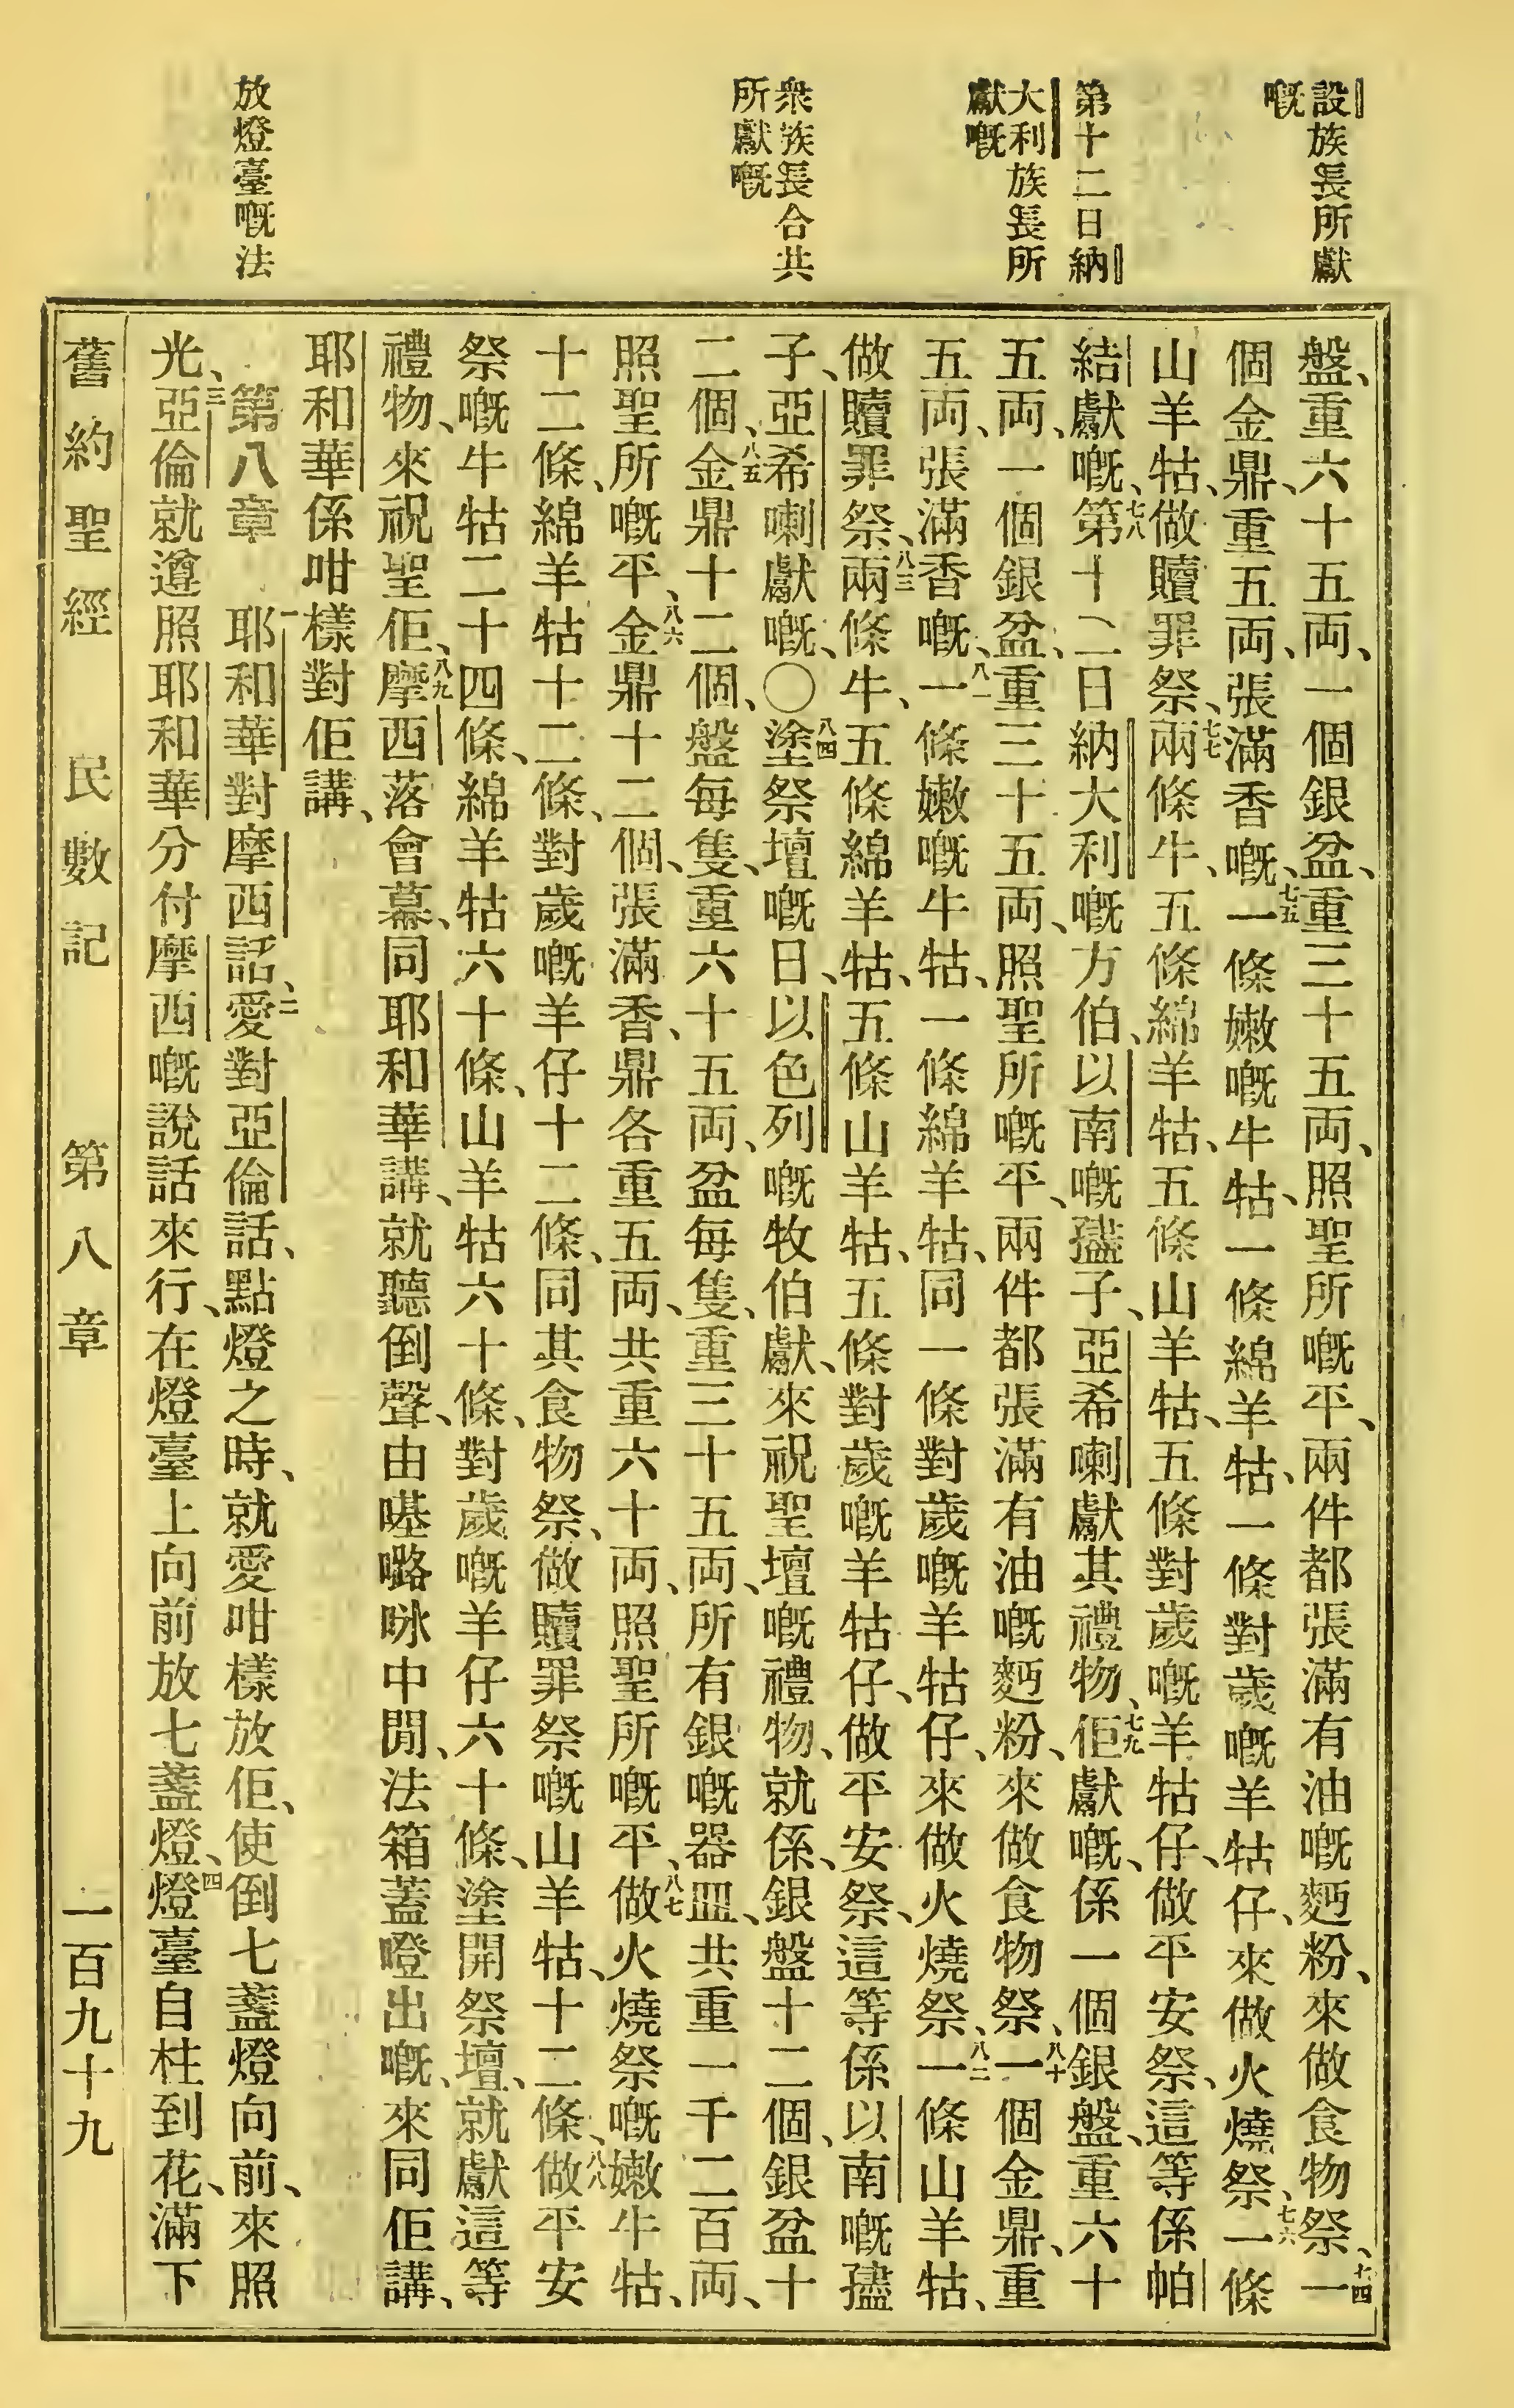 設族長所獻
嘅
第十二日納
大利族長所
獻嘅
衆族長合共
所獻嘅
放燈臺嘅法
盤、重六十五両、一個銀盆、重三十五両、照聖所嘅平、兩件都張滿有油嘅麪粉、來做食物祭、七四一
個金鼎、重五両、張滿香嘅、七五一條嫩嘅牛牯、一條綿羊牯、一條對歲嘅羊牯仔、來做火燒祭、七六一條
山羊牯、做贖罪祭、七七兩條牛、五條綿羊牯、五條山羊牯、五條對歲嘅羊牯仔、做平安祭、這等係帕
結獻嘅、七八第十二日納大利嘅方伯、以南嘅𢪐子、亞希喇獻其禮物、七九佢獻嘅、係一個銀盤、重六十
五両、一個銀盆、重三十五両、照聖所嘅平、兩件都張滿有油嘅麪粉、來做食物祭、八十一個金鼎、重
五両、張滿香嘅、八一一條嫩嘅牛牯、一條綿羊牯、同一條對歲嘅羊牯仔、來做火燒祭、八二一條山羊牯、
做贖罪祭、八三兩條牛、五條綿羊牯、五條山羊牯、五條對歲嘅羊牯仔、做平安祭、這等係以南嘅𢪐
子、亞希喇獻嘅、〇八四塗祭壇嘅日、以色列嘅牧伯獻、來祝聖壇嘅禮物、就係、銀盤十二個、銀盆十
二個、八五金鼎十二個、盤每隻、重六十五両、盆每隻、重三十五両、所有銀嘅器皿、共重一千二百両、
照聖所嘅平、八六金鼎十二個、張滿香、鼎各重五両、共重六十両、照聖所嘅平、八七做火燒祭嘅嫩牛牯、
十二條、綿羊牯十二條、對歲嘅羊仔十二條、同其食物祭、做贖罪祭嘅山羊牯、十二條、八八做平安
祭嘅牛牯二十四條、綿羊牯六十條、山羊牯六十條、對歲嘅羊仔六十條、塗開祭壇、就獻這等
禮物、來祝聖佢、八九摩西落會幕、同耶和華講、就聽倒聲、由𠸝嚕㖠中間、法箱蓋嶝出嘅、來同佢講、
耶和華係咁樣對佢講、
第八章 一耶和華對摩西話、二愛對亞倫話、點燈之時、就愛咁樣放佢、使倒七盞燈向前、來照
光、三亞倫就遵照耶和華分付摩西嘅說話來行、在燈臺上向前放七盞燈、四燈臺自柱到花、滿下
舊約聖經 民數記 第八章 一百九十九